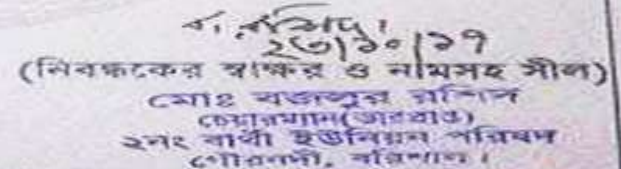 ব. রশিদ।
২৩/১০/১৭
(নিবন্ধকের স্বাক্ষর ও নামসহ সীল)
মোঃ বজলুর রশিদ
চেয়ারম্যান(ভারপ্রাপ্ত)
২নং বার্থী ইউনিয়ন পরিষদ
গৌরনদী, বরিশাল।